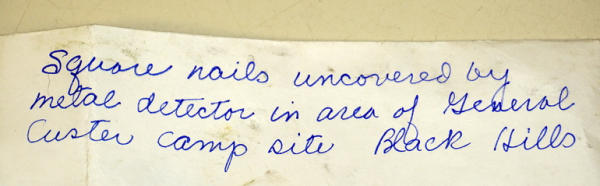 Square nails uncovered by
metal detector in area of General
Custer camp site Black Hills